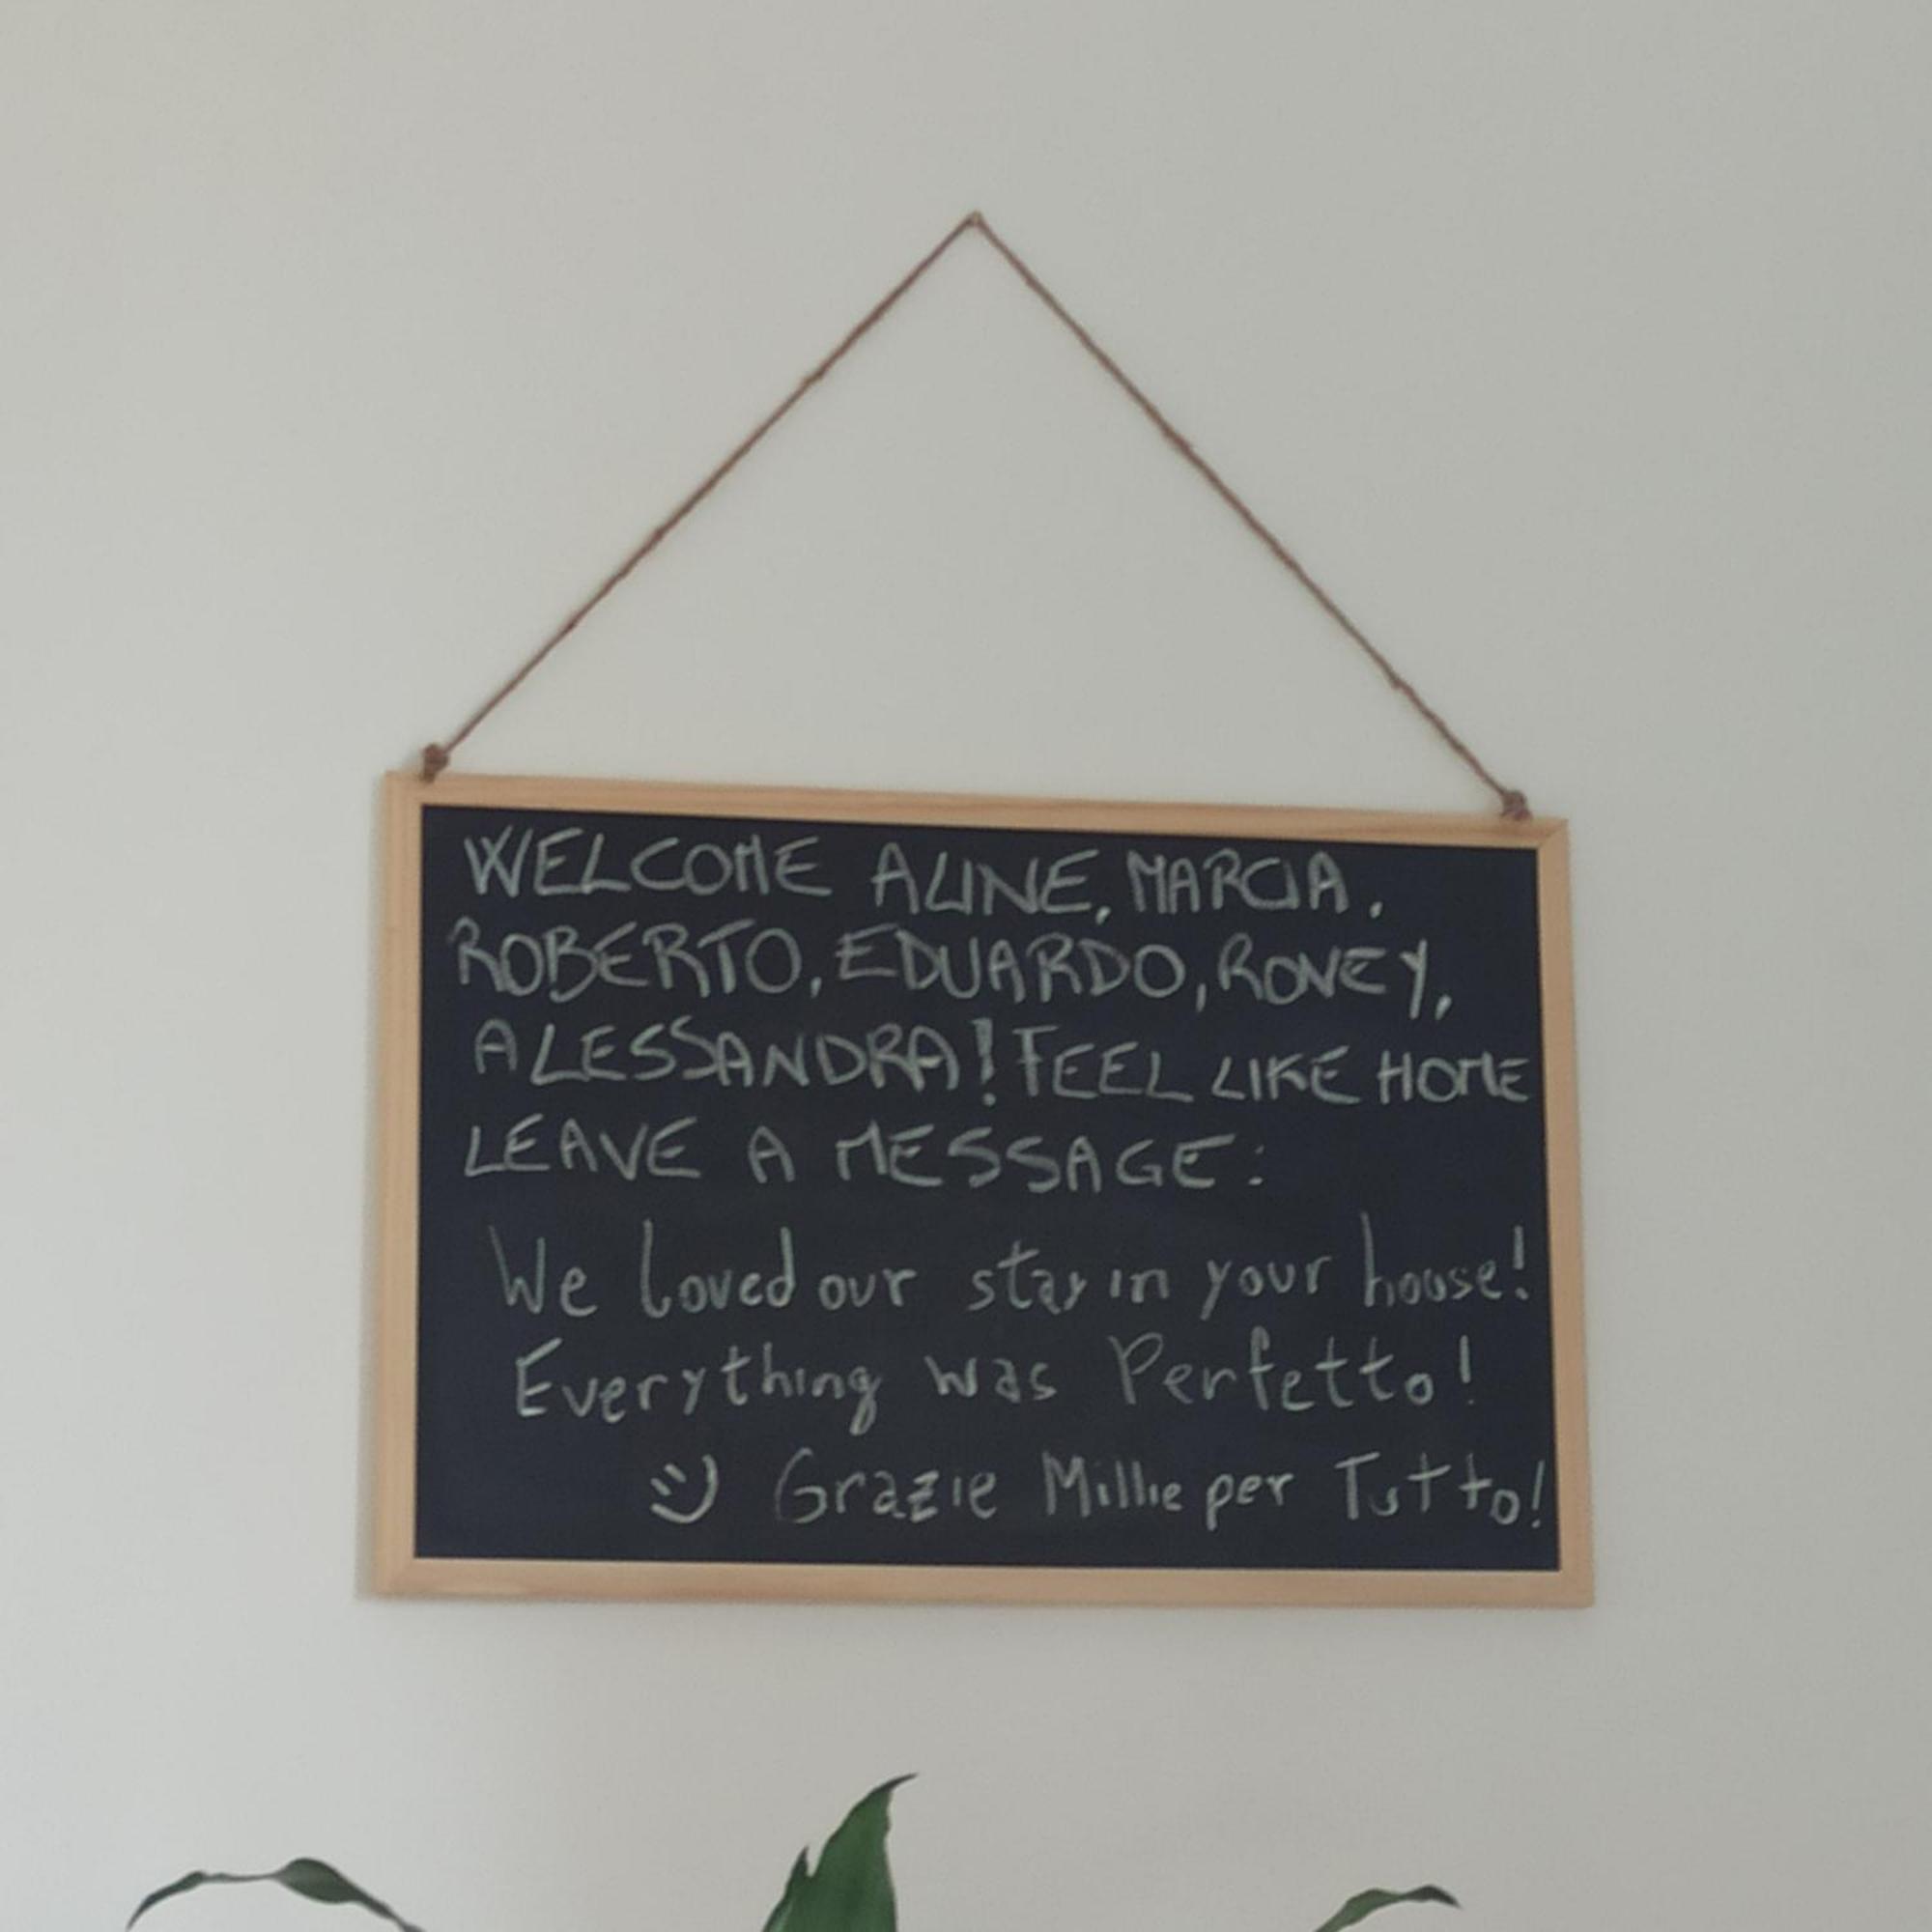 WELCOME ALINE, MARCIA,
ROBERTO, EDUARDO, RONEY,
ALESSANDRA! FEEL LIKE HOME
LEAVE A MESSAGE:
We loved our stay in your house!
Everything was Perfetto!
:) Grazie Millie per Tutto!